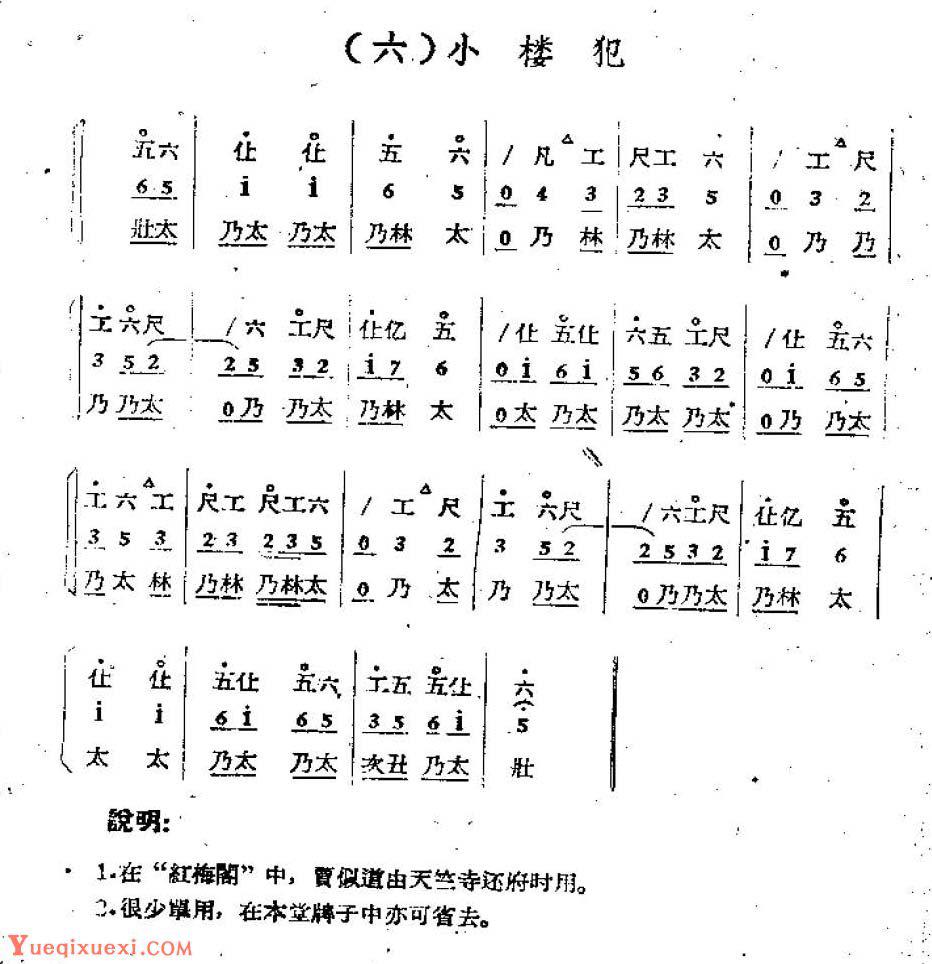 (六)小 楼 犯
五六 仩 仩 五 六 / 凡 工 尺工 六 / 工 尺
6 5 i i 6 5 0 4 3 2 3 5 0 3 2
壯太 乃太 乃太 乃林 太 0 乃 林 乃林 太 0 乃 乃
工 六尺 / 六 工尺 仩亿 五 / 仩 五仩 六五 工尺 / 仩 五六
3 5 2 2 5 3 2 i 7 6 0 i 6 i 5 6 3 2 0 i 6 5
乃 乃太 0 乃 乃太 乃林 太 0 太 乃太 乃太 乃太 0 乃 乃太
工 六 工 尺工 尺工六 / 工 尺 工 六尺 / 六工尺 仩亿 五
3 5 3 2 3 2 3 5 0 3 2 3 5 2 2 5 3 2 i 7 6
乃 太 林 乃林 乃林太 0 乃 太 乃 乃太 0 乃乃太 乃林 太
仩 仩 五仩 五六 工五 五仩 六
i i 6 i 6 5 3 5 6 i 5
太 太 乃太 乃太 次丑 乃太 壯
說明:
1.在“紅梅閣”中,賈似道由天竺寺还府时用。
2.很少單用,在本堂牌子中亦可省去。
Yueqixuexi.com(乐器学习网)